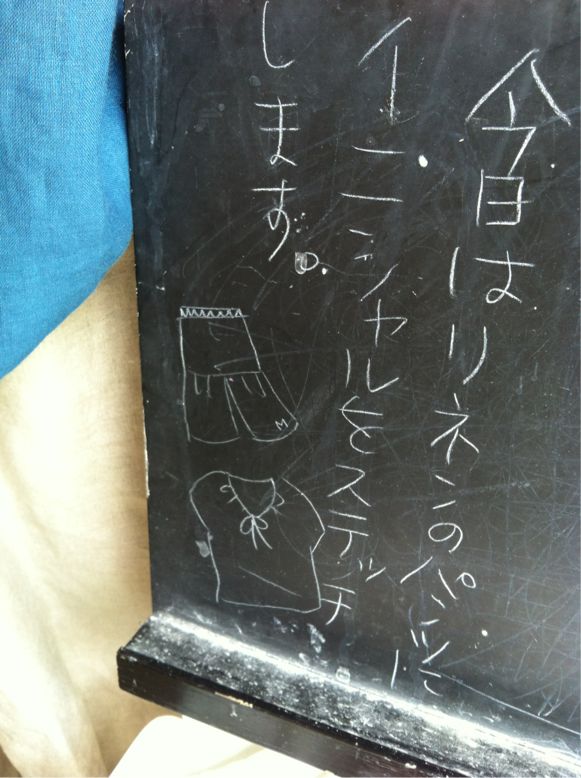 今日はリネンのパンツに
イニシャルをステッチ
します。
M